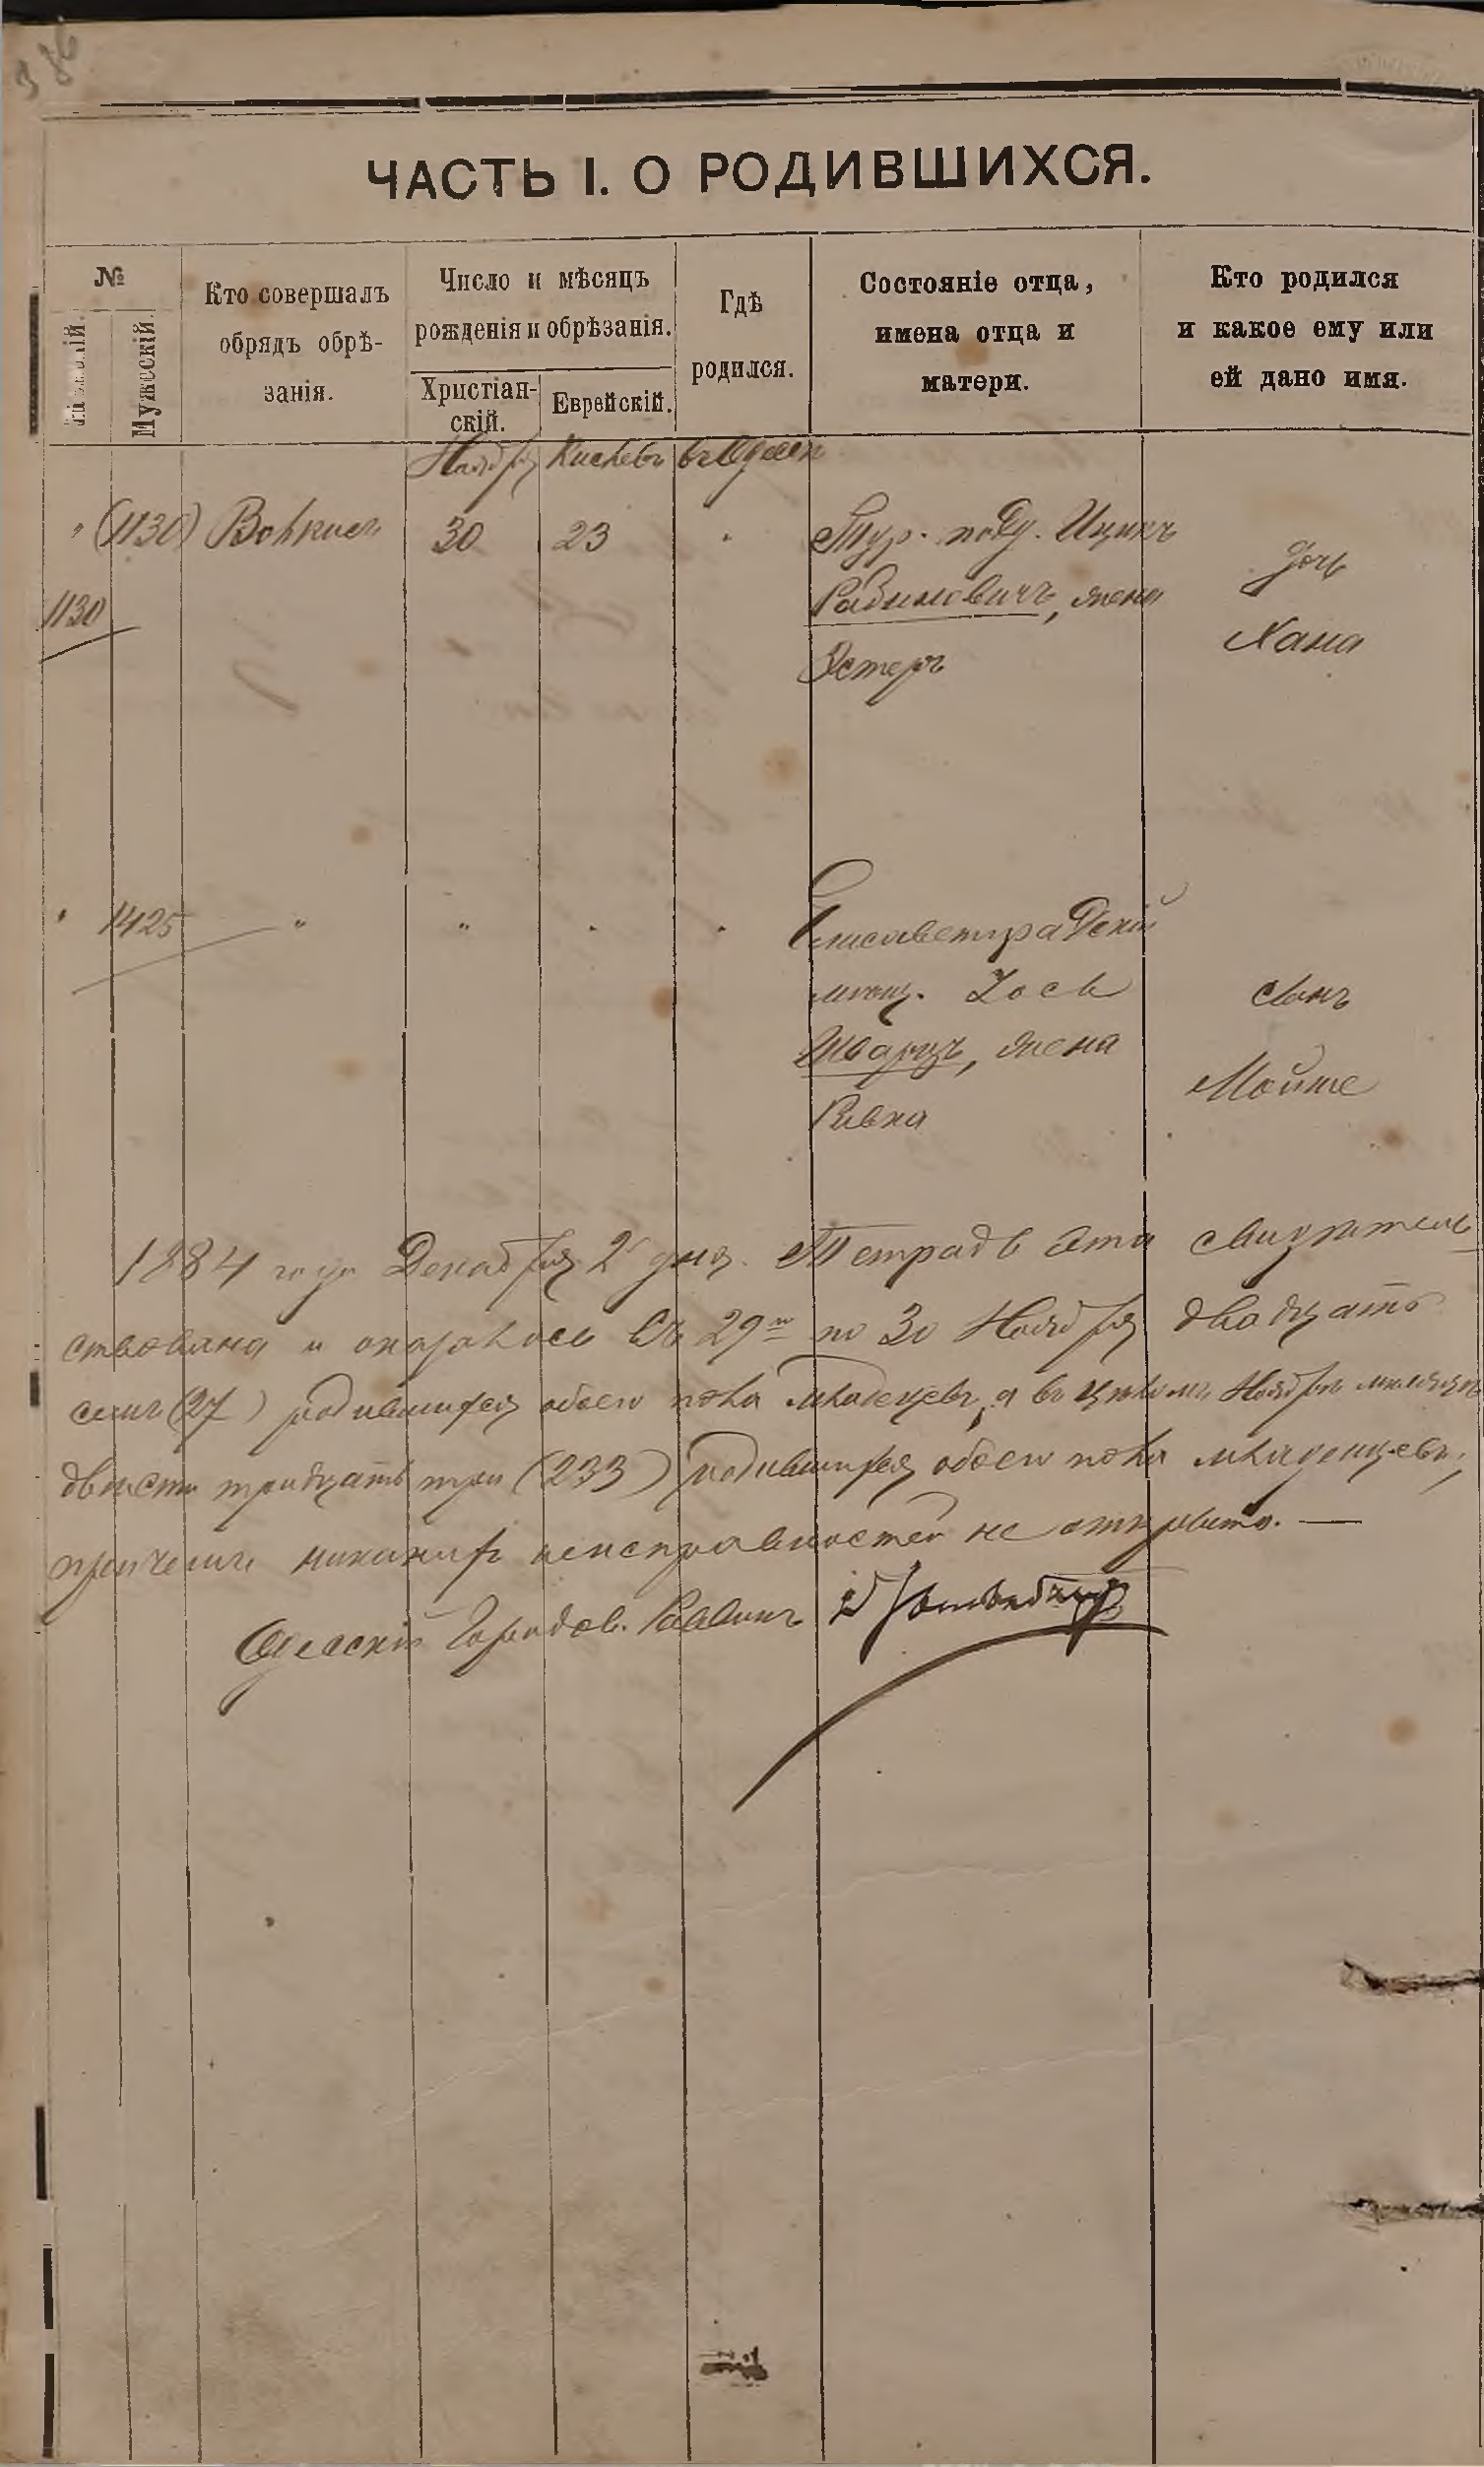 386
ЧАСТЬ I. О РОДИВШИХСЯ.
№
Женскій.
Мужескій.
Кто совершалъ
обрядъ обрѣ-
занія.
Число и мѣсяцъ
рожденія и обрѣзанія.
Христіан-
скій.
Еврейскій.
Гдѣ
родился.
Состояніе отца,
имена отца и
матери.
Кто родился
и какое ему или
ей дано имя.
Ноября Кислевъ въ Одессѣ
" (1130) Волкисъ 30 23 " Тур. подд. Ицикъ
1130 Рабиновичъ, жена
Эстеръ
Дочь
Хана
" 1425 " " " " Елисаветградскій
мѣщ. Іось
Шварцъ, жена
Ривка
сынъ
Мойше
1884 года Декабря 2 дня. Тетрадь эта свидѣтель-
ствована и оказалось съ 29го по 30 Ноября двадцать
семь (27) родившихся обоего пола младенцевъ, а въ цѣломъ Ноябрѣ мѣсяцѣ
двѣсти тридцать три (233) родившихся обоего пола младенцевъ,
причемъ никакихъ неисправностей не открыто. —
Одесскій Городов. Раввинъ